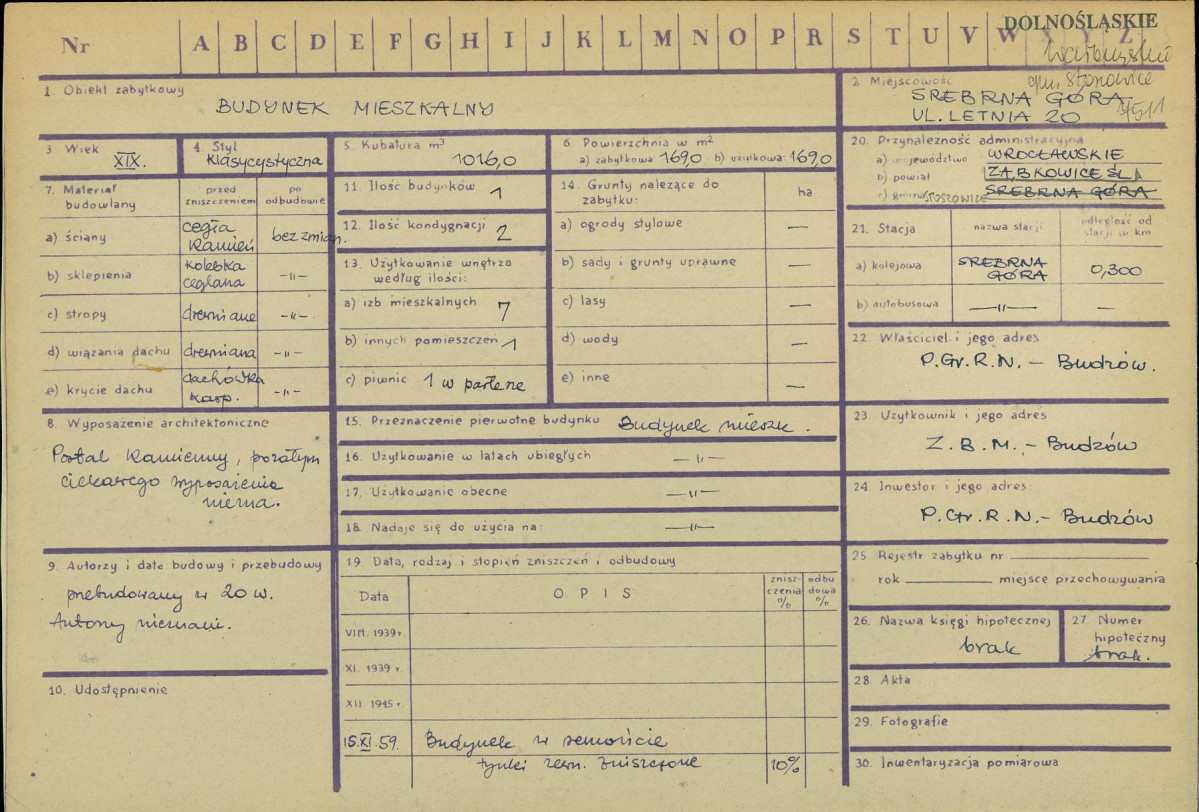 DOLNOŚLĄSKIE
Nr A B C D E F G H I J K L M N O P R S T U V W X Y Z
wałbrzyskie
gm. Stoszowice
1. Obiekt zabytkowy
BUDYNEK MIESZKALNY
2. Miejscowość
SREBRNA GÓRA
UL. LETNIA 20
3. Wiek
XIX.
4. Styl
Klasycystyczna
5. Kubatura m³
1016,0
6. Powierzchnia w m²
a) zabytkowa 169,0 b) użytkowa: 169,0
7. Materiał budowlany
przed zniszczeniem
po odbudowie
a) ściany
cegła
kamień
bez zmian.
b) sklepienia
kolebka
ceglana
-"-
c) stropy
drewniane
-"-
d) wiązania dachu
drewniana
-"-
e) krycie dachu
dachówka
karp.
-"-
8. Wyposażenie architektoniczne
Portal kamienny, pozatym
ciekawego wyposażenia
niema.
9. Autorzy i data budowy i przebudowy
przebudowany w 20 w.
Autorzy nieznani.
10. Udostępnienie
11. Ilość budynków
1
12. Ilość kondygnacji
2
13. Użytkowanie wnętrza
według ilości:
a) izb mieszkalnych 7
b) innych pomieszczeń 1
c) piwnic 1 w parterze
14. Grunty należące do
zabytku:
ha
a) ogrody stylowe —
b) sady i grunty uprawne —
c) lasy —
d) wody —
e) inne —
15. Przeznaczenie pierwotne budynku Budynek mieszk.
16. Użytkowanie w latach ubiegłych —"—
17. Użytkowanie obecne —"—
18. Nadaje się do użycia na: —"—
19. Data, rodzaj i stopień zniszczeń i odbudowy
Data
OPIS
znisz-
czenia
%
odbu
dowa
%
VIII. 1939 r.
XI. 1939 r.
XII. 1945 r.
15.XI.59. Budynek w remoncie
tynki zewn. zniszczone 10%
20. Przynależność administracyjna
a) województwo WROCŁAWSKIE
b) powiat ZĄBKOWICE ŚL.
c) gmina STOSZOWICE SREBRNA GÓRA
21. Stacja
nazwa stacji
odległość od
stacji w km
a) kolejowa
SREBRNA
GÓRA
0,300
b) autobusowa —"— —
22. Właściciel i jego adres
P.Gr.R.N. – Budzów.
23. Użytkownik i jego adres
Z.B.M. – Budzów
24. Inwestor i jego adres:
P.Gr.R.N. – Budzów
25. Rejestr zabytku nr
rok miejsce przechowywania
26. Nazwa księgi hipotecznej
brak
27. Numer
hipoteczny
brak.
28. Akta
29. Fotografie
30. Inwentaryzacja pomiarowa